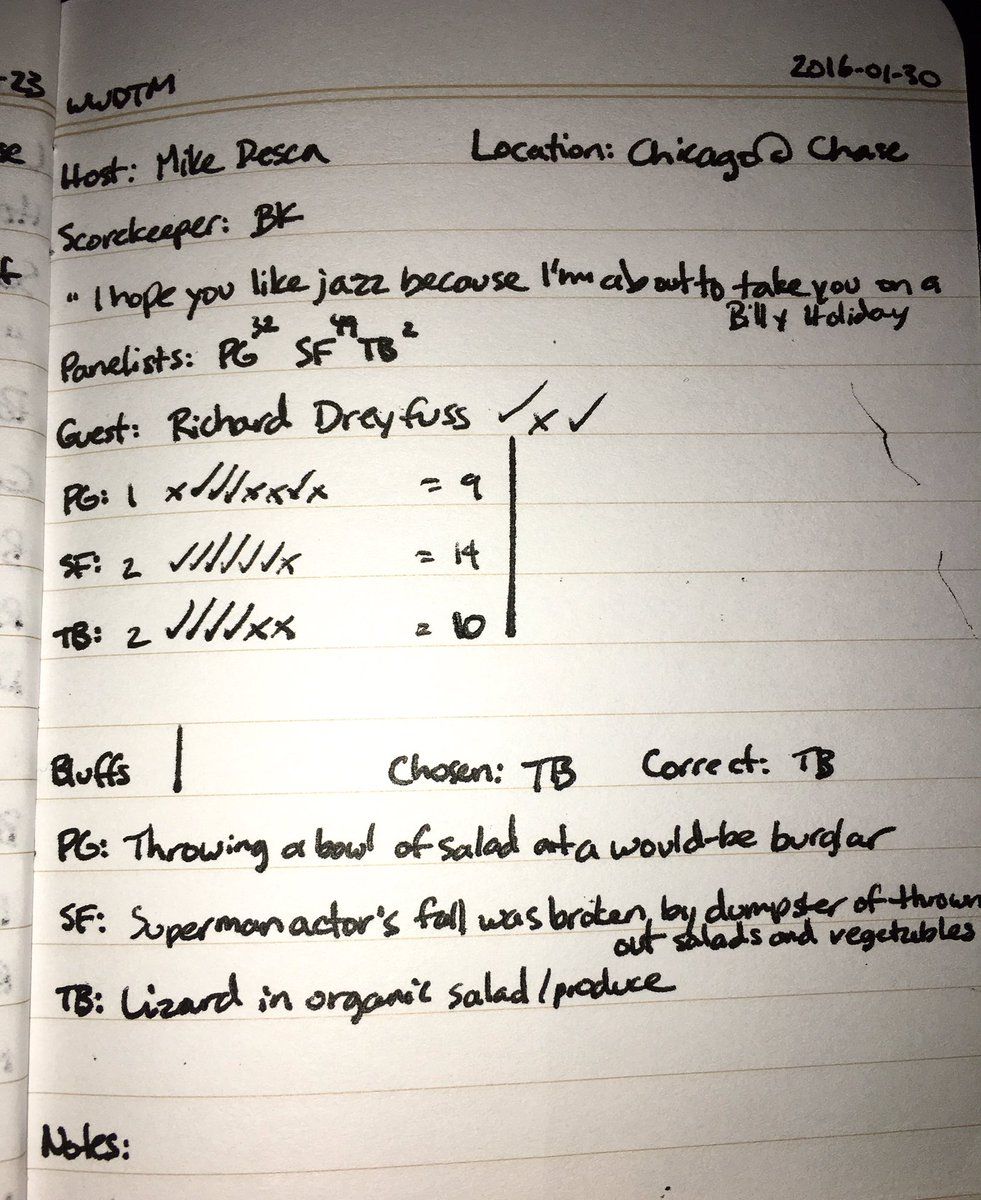 -23
WWDTM 2016-01-30
Host: Mike Pesca Location: Chicago @ Chase
Scorekeeper: BK
"I hope you like jazz because I'm about to take you on a
Billy Holiday
Panelists: PG 32 SF 49 TB 2
Guest: Richard Dreyfuss ✓ x ✓
PG: 1 x✓✓✓xx✓x = 9
SF: 2 ✓✓✓✓✓✓x = 14
TB: 2 ✓✓✓✓xx = 10
Bluffs | Chosen: TB Correct: TB
PG: Throwing a bowl of salad at a would-be burglar
SF: Superman actor's fall was broken by dumpster of thrown
out salads and vegetables
TB: Lizard in organic salad/produce
Notes: